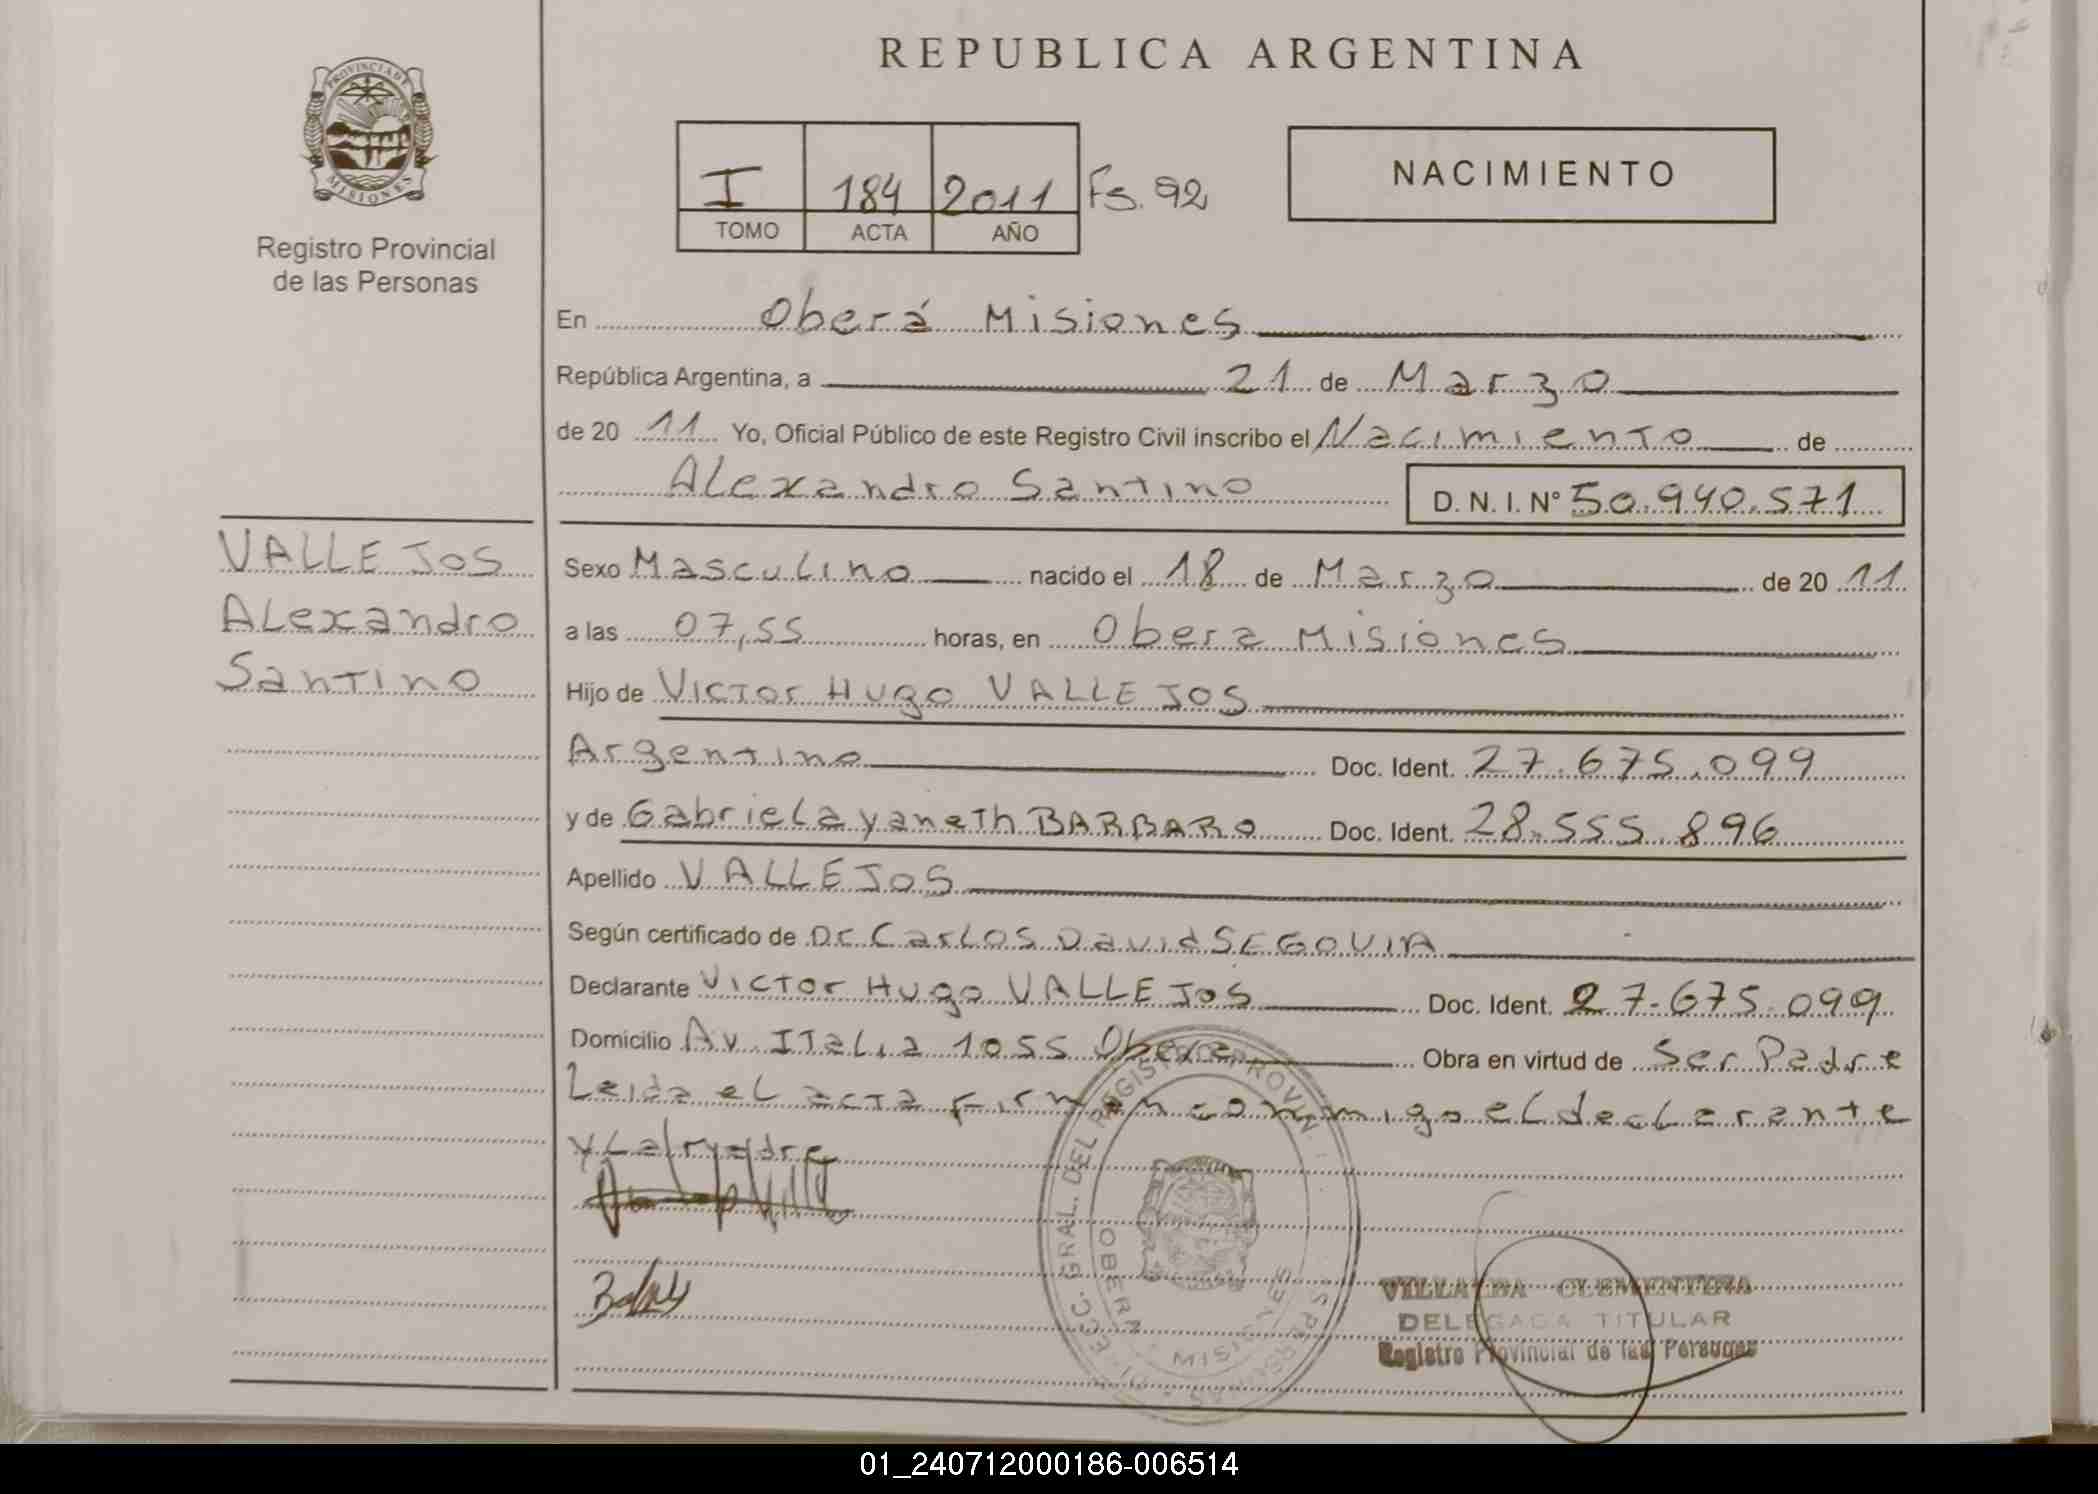 REPUBLICA ARGENTINA
PROVINCIA DE
MISIONES
Registro Provincial
de las Personas
I 184 2011 Fs. 92
TOMO ACTA AÑO
NACIMIENTO
En Oberá Misiones
República Argentina, a 21 de Marzo
de 20 11 Yo, Oficial Público de este Registro Civil inscribo el Nacimiento de
Alexandro Santino D. N. I. N° 50.940.571
VALLEJOS
Alexandro
Santino
Sexo Masculino nacido el 18 de Marzo de 20 11
a las 07,55 horas, en Obera Misiones
Hijo de Victor Hugo VALLEJOS
Argentino Doc. Ident. 27.675.099
y de Gabriela yaneth BARBARO Doc. Ident. 28.555.896
Apellido VALLEJOS
Según certificado de Dr Carlos David SEGOVIA
Declarante Victor Hugo VALLEJOS Doc. Ident. 27.675.099
Domicilio Av. Italia 1055 Obera Obra en virtud de Ser Padre
Leida el acta firman conmigo el declarante
y La madre
GRAL. DEL REGISTRO PROVIN
OBERA
MISIONES
VILLALBA CLEMENTINA
DELEGADA TITULAR
Registro Provincial de las Personas
01_240712000186-006514